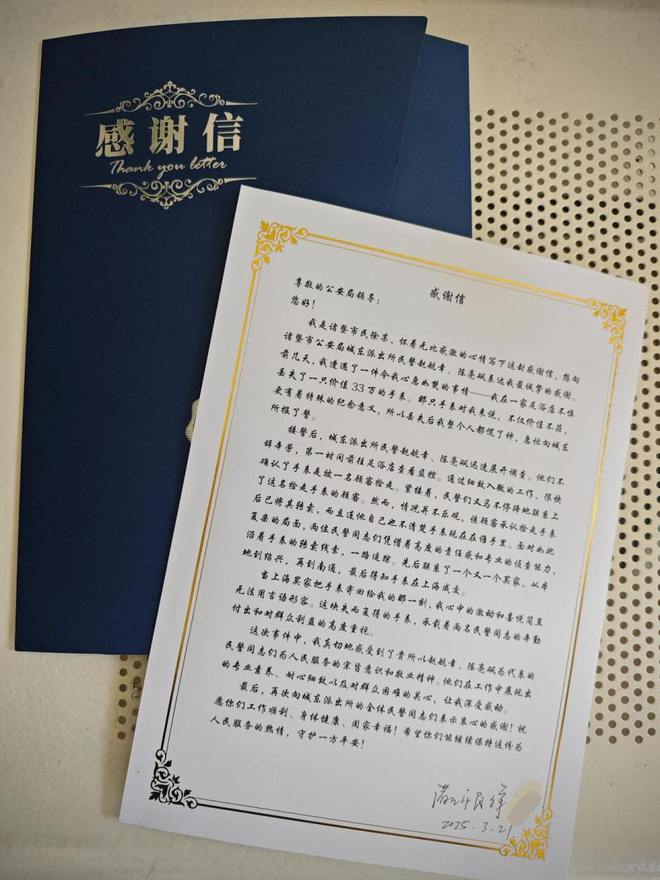 感谢信
Thank you letter
感谢信
尊敬的公安局领导：
您好！
我是诸暨市民徐某，怀着无比感激的心情写下这封感谢信，想向
诸暨市公安局城东派出所民警赵航章、陈亮砜表达我最诚挚的感谢。
前几天，我遭遇了一件令我心急如焚的事情——我在一家足浴店不慎
丢失了一只价值33万的手表。那只手表对我来说，不仅价值不菲，
更有着特殊的纪念意义，所以丢失后我整个人都慌了神，急忙向城东
所报了警。
接警后，城东派出所民警赵航章、陈亮砜迅速展开调查。他们不
辞辛劳，第一时间前往足浴店查看监控。通过细致入微的工作，很快
确认了手表是被一名顾客捡走。紧接着，民警们又马不停蹄地联系上
了这名捡走手表的顾客。然而，情况并不乐观，该顾客承认捡走手表
后已将其转卖，而且连他自己也不清楚手表现在在谁手里。面对如此
复杂的局面，两位民警同志们凭借着高度的责任感和专业的侦查能力，
沿着手表的转卖线索，一路追踪。先后联系了一个又一个买家，从本
地到绍兴，再到南通，最后得知手表在上海成交。
当上海买家把手表寄回给我的那一刻，我心中的激动和喜悦简直
无法用言语形容。这块失而复得的手表，承载着两名民警同志的辛勤
付出和对群众利益的高度重视。
这次事件中，我真切地感受到了贵所以赵航章、陈亮砜为代表的
民警同志们为人民服务的宗旨意识和敬业精神。他们在工作中展现出
的专业素养、耐心细致以及对群众困难的关心，让我深受感动。
最后，再次向城东派出所的全体民警同志们表示衷心的感谢！祝
愿你们工作顺利、身体健康、阖家幸福！希望你们能继续保持这份为
人民服务的热情，守护一方平安！
2025.3.21